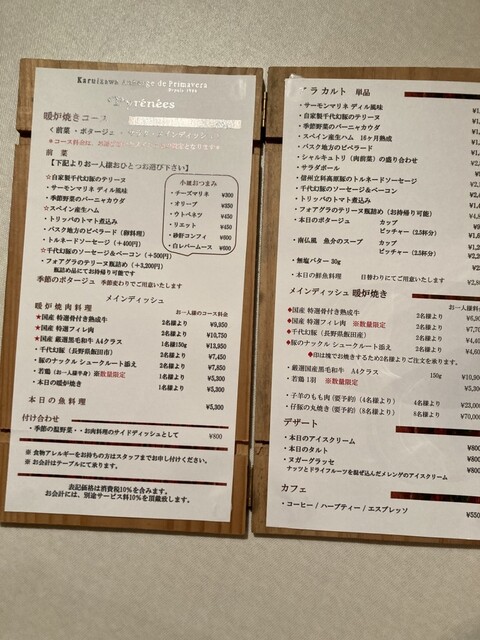 Karuizawa Auberge de Primavera
Pyrénées
暖炉焼きコース
前 菜
【下記よりお一人様おひとつお選び下さい】
☆自家製千代幻豚のテリーヌ
・サーモンマリネ ディル風味
・季節野菜のバーニャカウダ
☆スペイン産生ハム
・トリッパのトマト煮込み
・バスク地方のピペラード（卵料理）
・トルネードソーセージ（＋400円）
☆千代幻豚のソーセージ＆ベーコン（＋500円）
・フォアグラのテリーヌ瓶詰め（＋3,200円）
瓶詰め品にてお持ち帰り可能です
季節のポタージュ 季節変わりでご用意いたします
小皿おつまみ
・チーズマリネ ¥300
・オリーブ ¥350
・ウトペネツ ¥450
・リエット ¥450
・砂肝コンフィ ¥600
・白レバームース ¥600
メインディッシュ
暖炉焼肉料理 お一人様のコース料金
★国産 特選骨付き熟成牛 2名様より ¥9,950
★国産 特選フィレ肉 2名様より ¥10,750
★厳選国産黒毛和牛 A4クラス 1名様150g ¥13,950
・千代幻豚（長野県飯田市） 2名様より ¥7,450
・豚のナックル シュークルート添え 2名様より ¥7,850
・若鶏（お一人様半身）※数量限定 1名様より ¥5,300
・本日の暖炉焼き 1名様より ¥5,300
本日の魚料理 ¥5,300
付け合わせ
・季節の温野菜・・お肉料理のサイドディッシュとして ¥800
※ 食物アレルギーをお持ちの方はスタッフまでお申し付けください。
※ お会計はテーブルにて承ります。
表記価格は消費税10%を含みます。
お会計には、別途サービス料10%を頂戴致します。
ラ カルト 単品
・サーモンマリネ ディル風味
・自家製千代幻豚のテリーヌ
・季節野菜のバーニャカウダ
・スペイン産生ハム 16ヶ月熟成
・バスク地方のピペラード
・シャルキュトリ（肉前菜）の盛り合わせ
・サラダボール
・信州立科高原豚のトルネードソーセージ
・千代幻豚のソーセージ＆ベーコン
・トリッパのトマト煮込み
・フォアグラのテリーヌ瓶詰め（お持帰り可能）
・本日のポタージュ カップ
ピッチャー（2.5杯分）
・南仏風 魚介のスープ カップ
ピッチャー（2.5杯分）
・無塩バター 30g
・本日の鮮魚料理 日替わりにてご用意
メインディッシュ 暖炉焼き
◆国産 特選骨付き熟成牛
◆国産 特選フィレ肉 ※数量限定
◆千代幻豚（長野県飯田産）
◆豚のナックル シュークルート添え
◆印は塊でお焼きするため2名様よりご注文を承ります。
・厳選国産黒毛和牛 A4クラス 150g
・若鶏 1羽 ※数量限定
・子羊のもも肉（要予約）（4名様より）
・仔豚の丸焼き（要予約）（8名様より）
デザート
・本日のアイスクリーム
・本日のタルト
・ヌガーグラッセ
ナッツとドライフルーツを混ぜ込んだメレンゲのアイスクリーム
カフェ
・コーヒー / ハーブティー / エスプレッソ ¥550